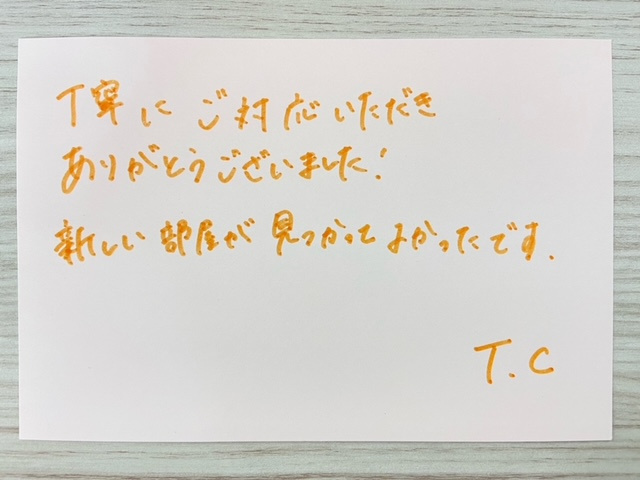 丁寧にご対応いただき
ありがとうございました!
新しい部屋が見つかってよかったです.
T.C